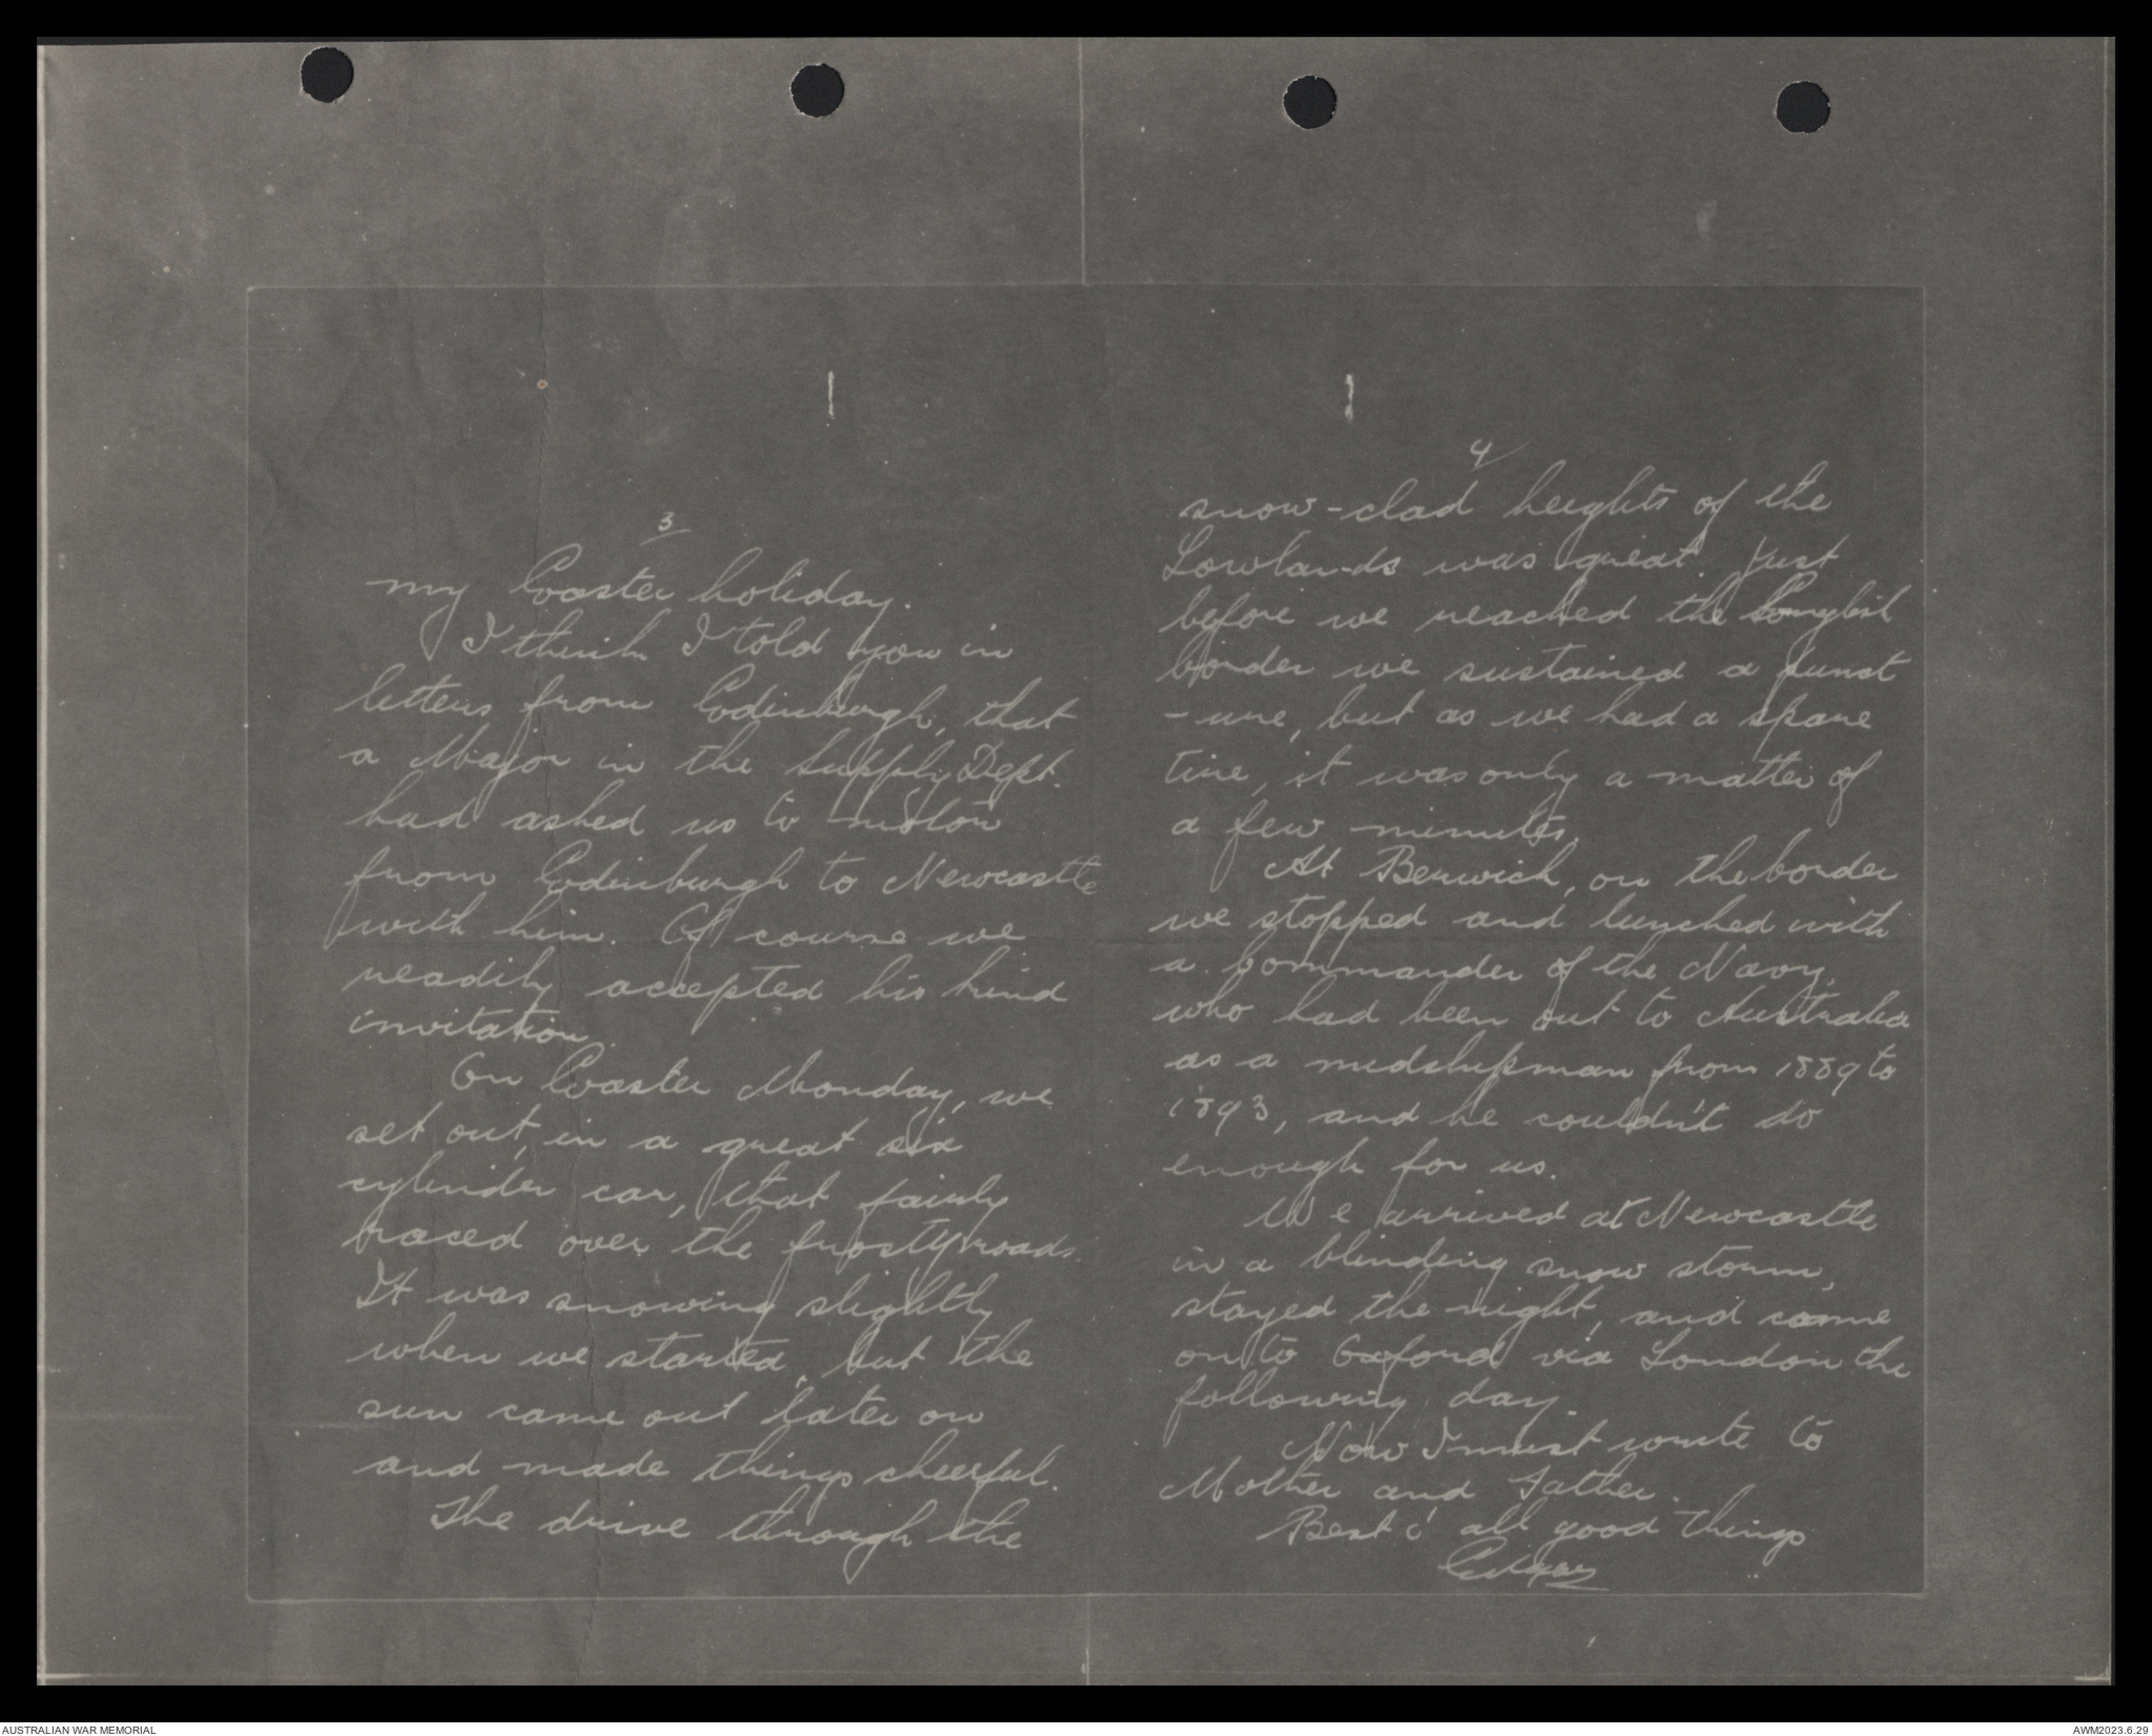 3
my Easter holiday.
I think I told you in
letters from Edinburgh, that
a Major in the Supply Dept.
had asked us to motor
from Edinburgh to Newcastle
with him. Of course we
readily accepted his kind
invitation.
On Easter Monday, we
set out, in a great six
cylinder car, that fairly
raced over the frosty roads.
It was snowing slightly
when we started, but the
sun came out later on
and made things cheerful.
The drive through the
4
snow-clad heights of the
Lowlands was great. Just
before we reached the
border we sustained a punct
-ure, but as we had a spare
tire, it was only a matter of
a few minutes.
At Berwick, on the border
we stopped and lunched with
a Commander of the Navy,
who had been out to Australia
as a midshipman from 1889 to
1893, and he couldn't do
enough for us.
We arrived at Newcastle
in a blinding snow storm,
stayed the night, and came
on to Oxford via London the
following day.
Now I must write to
Mother and Father.
Best o' all good things
AUSTRALIAN WAR MEMORIAL
AWM2023.6.29